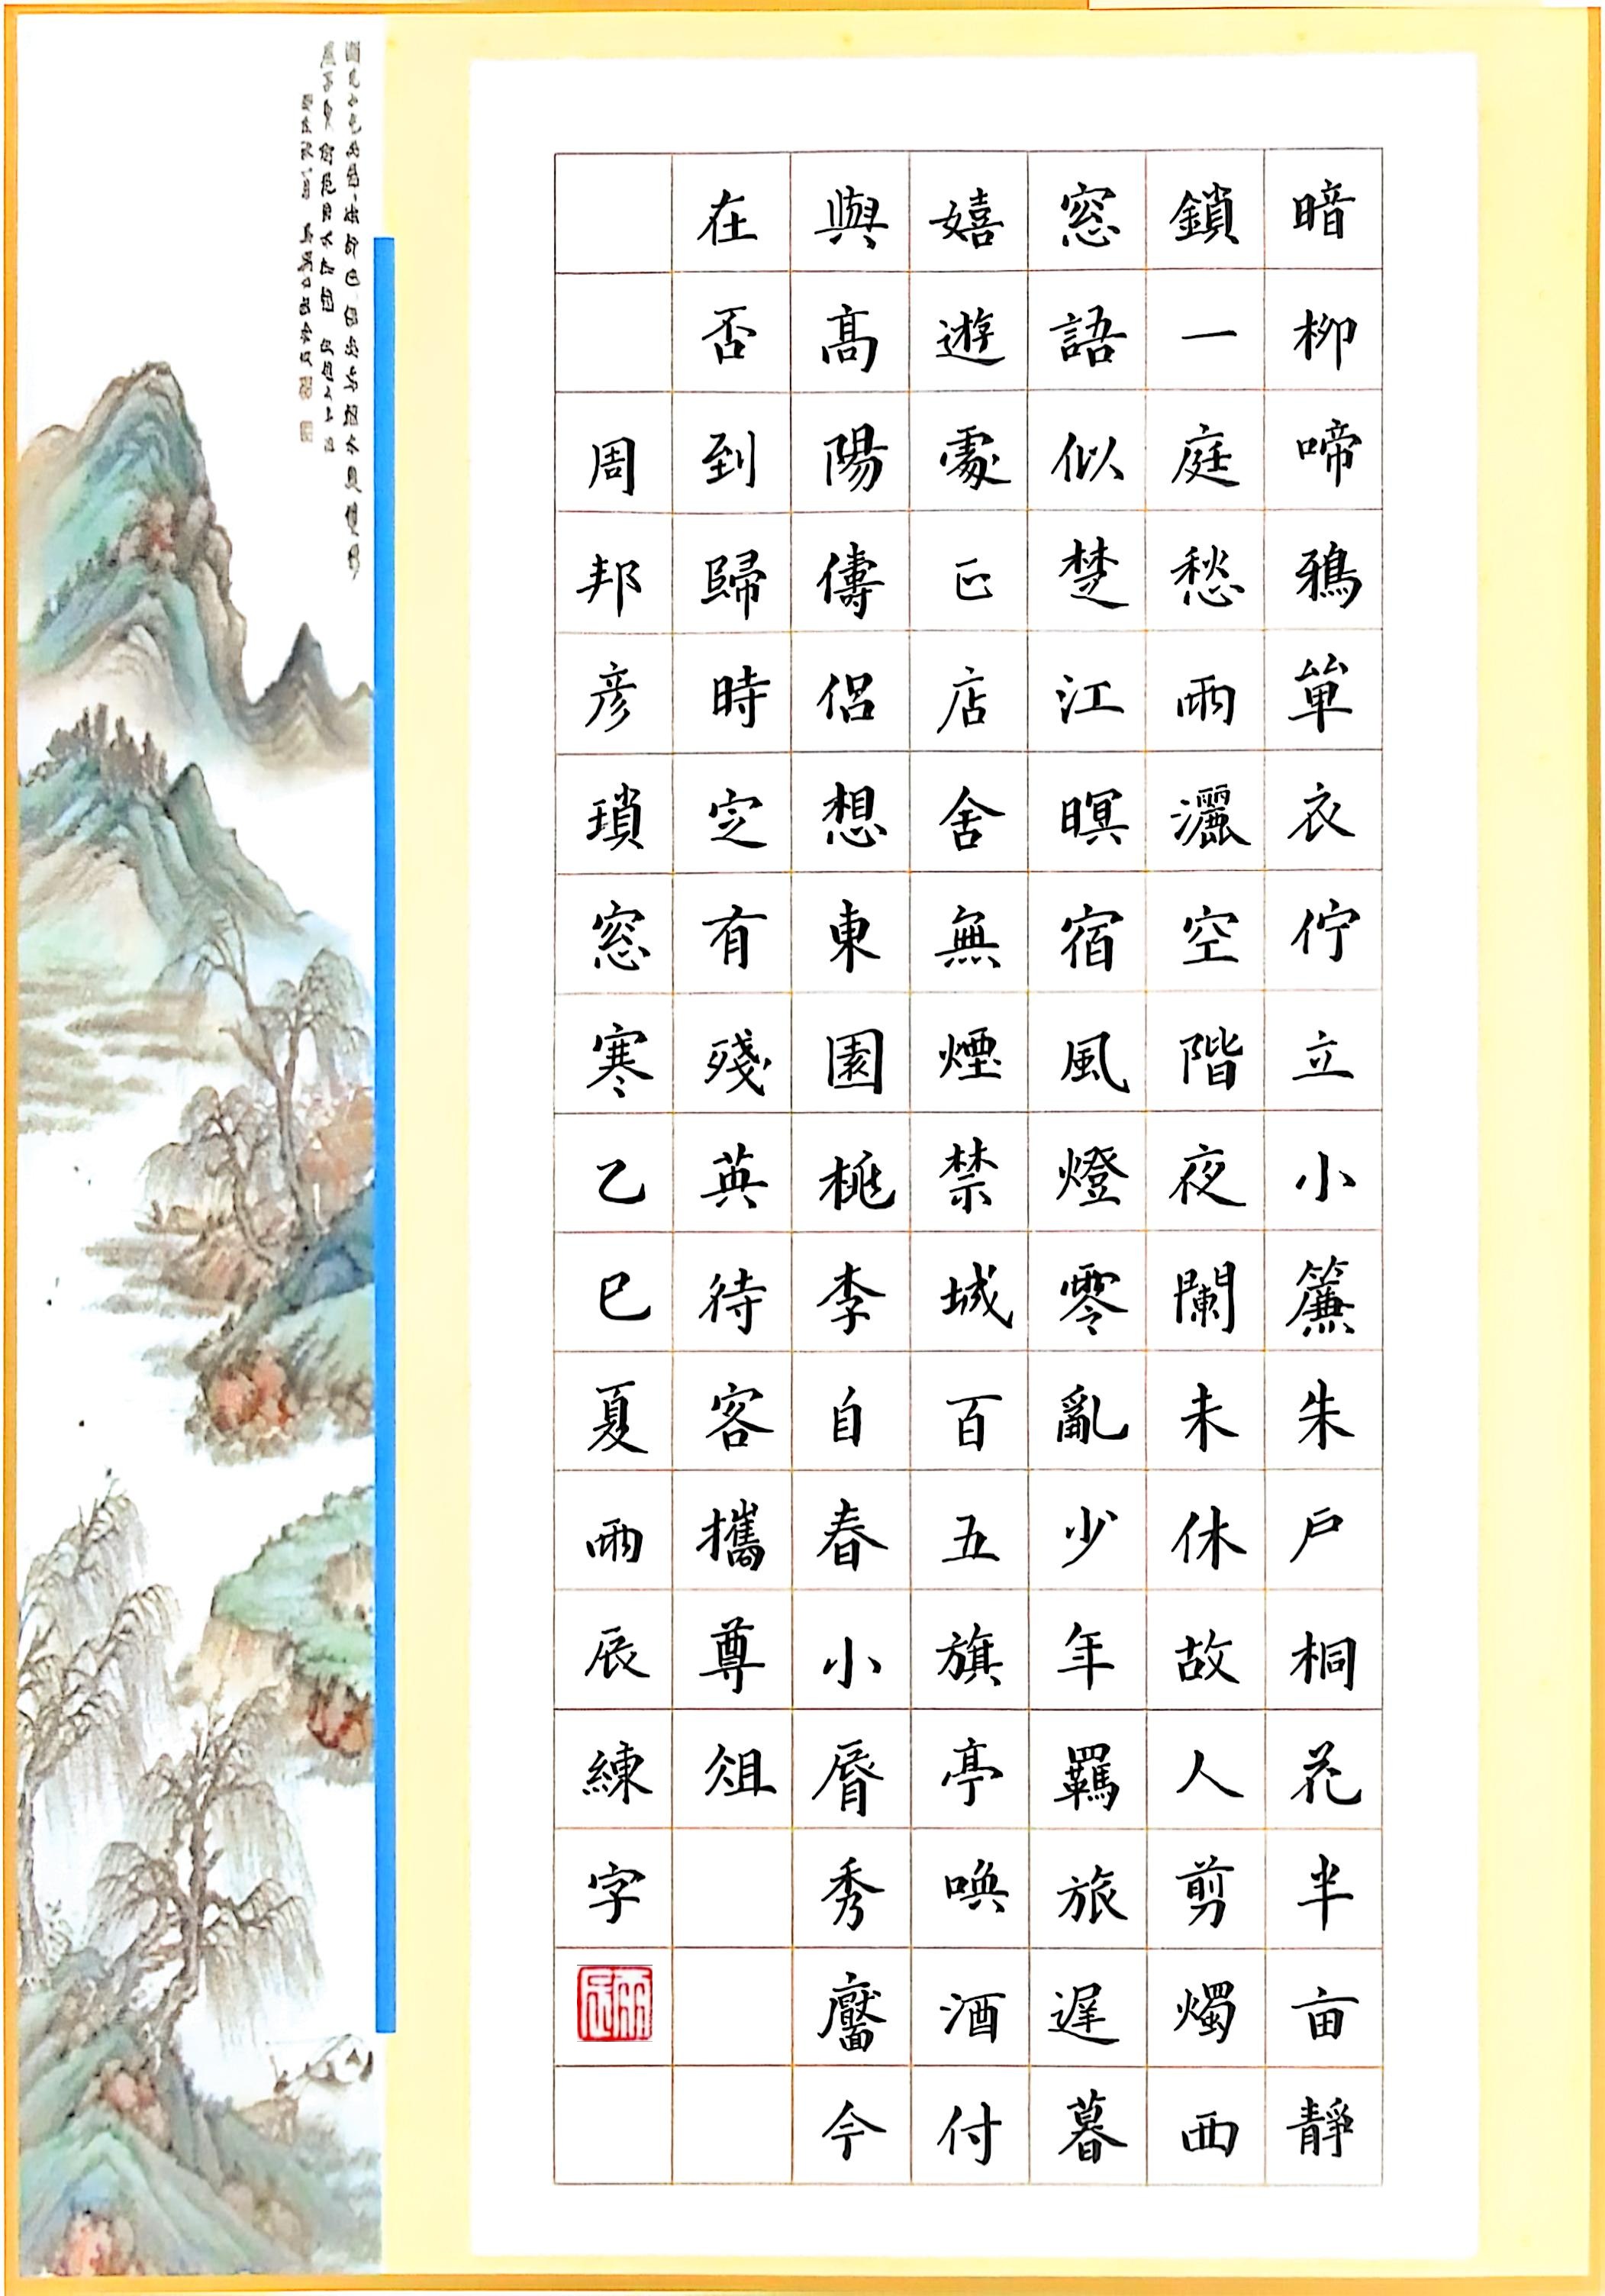 暗柳啼鴉單衣佇立小簾朱戶桐花半亩靜
鎖一庭愁雨灑空階夜闌未休故人剪燭西
窓語似楚江暝宿風燈零亂少年羈旅遲暮
嬉遊處正店舍無煙禁城百五旗亭喚酒付
與高陽儔侶想東園桃李自春小脣秀靨今
在否到歸時定有殘英待客攜尊俎
周邦彦瑣窓寒乙巳夏雨辰練字
雨辰